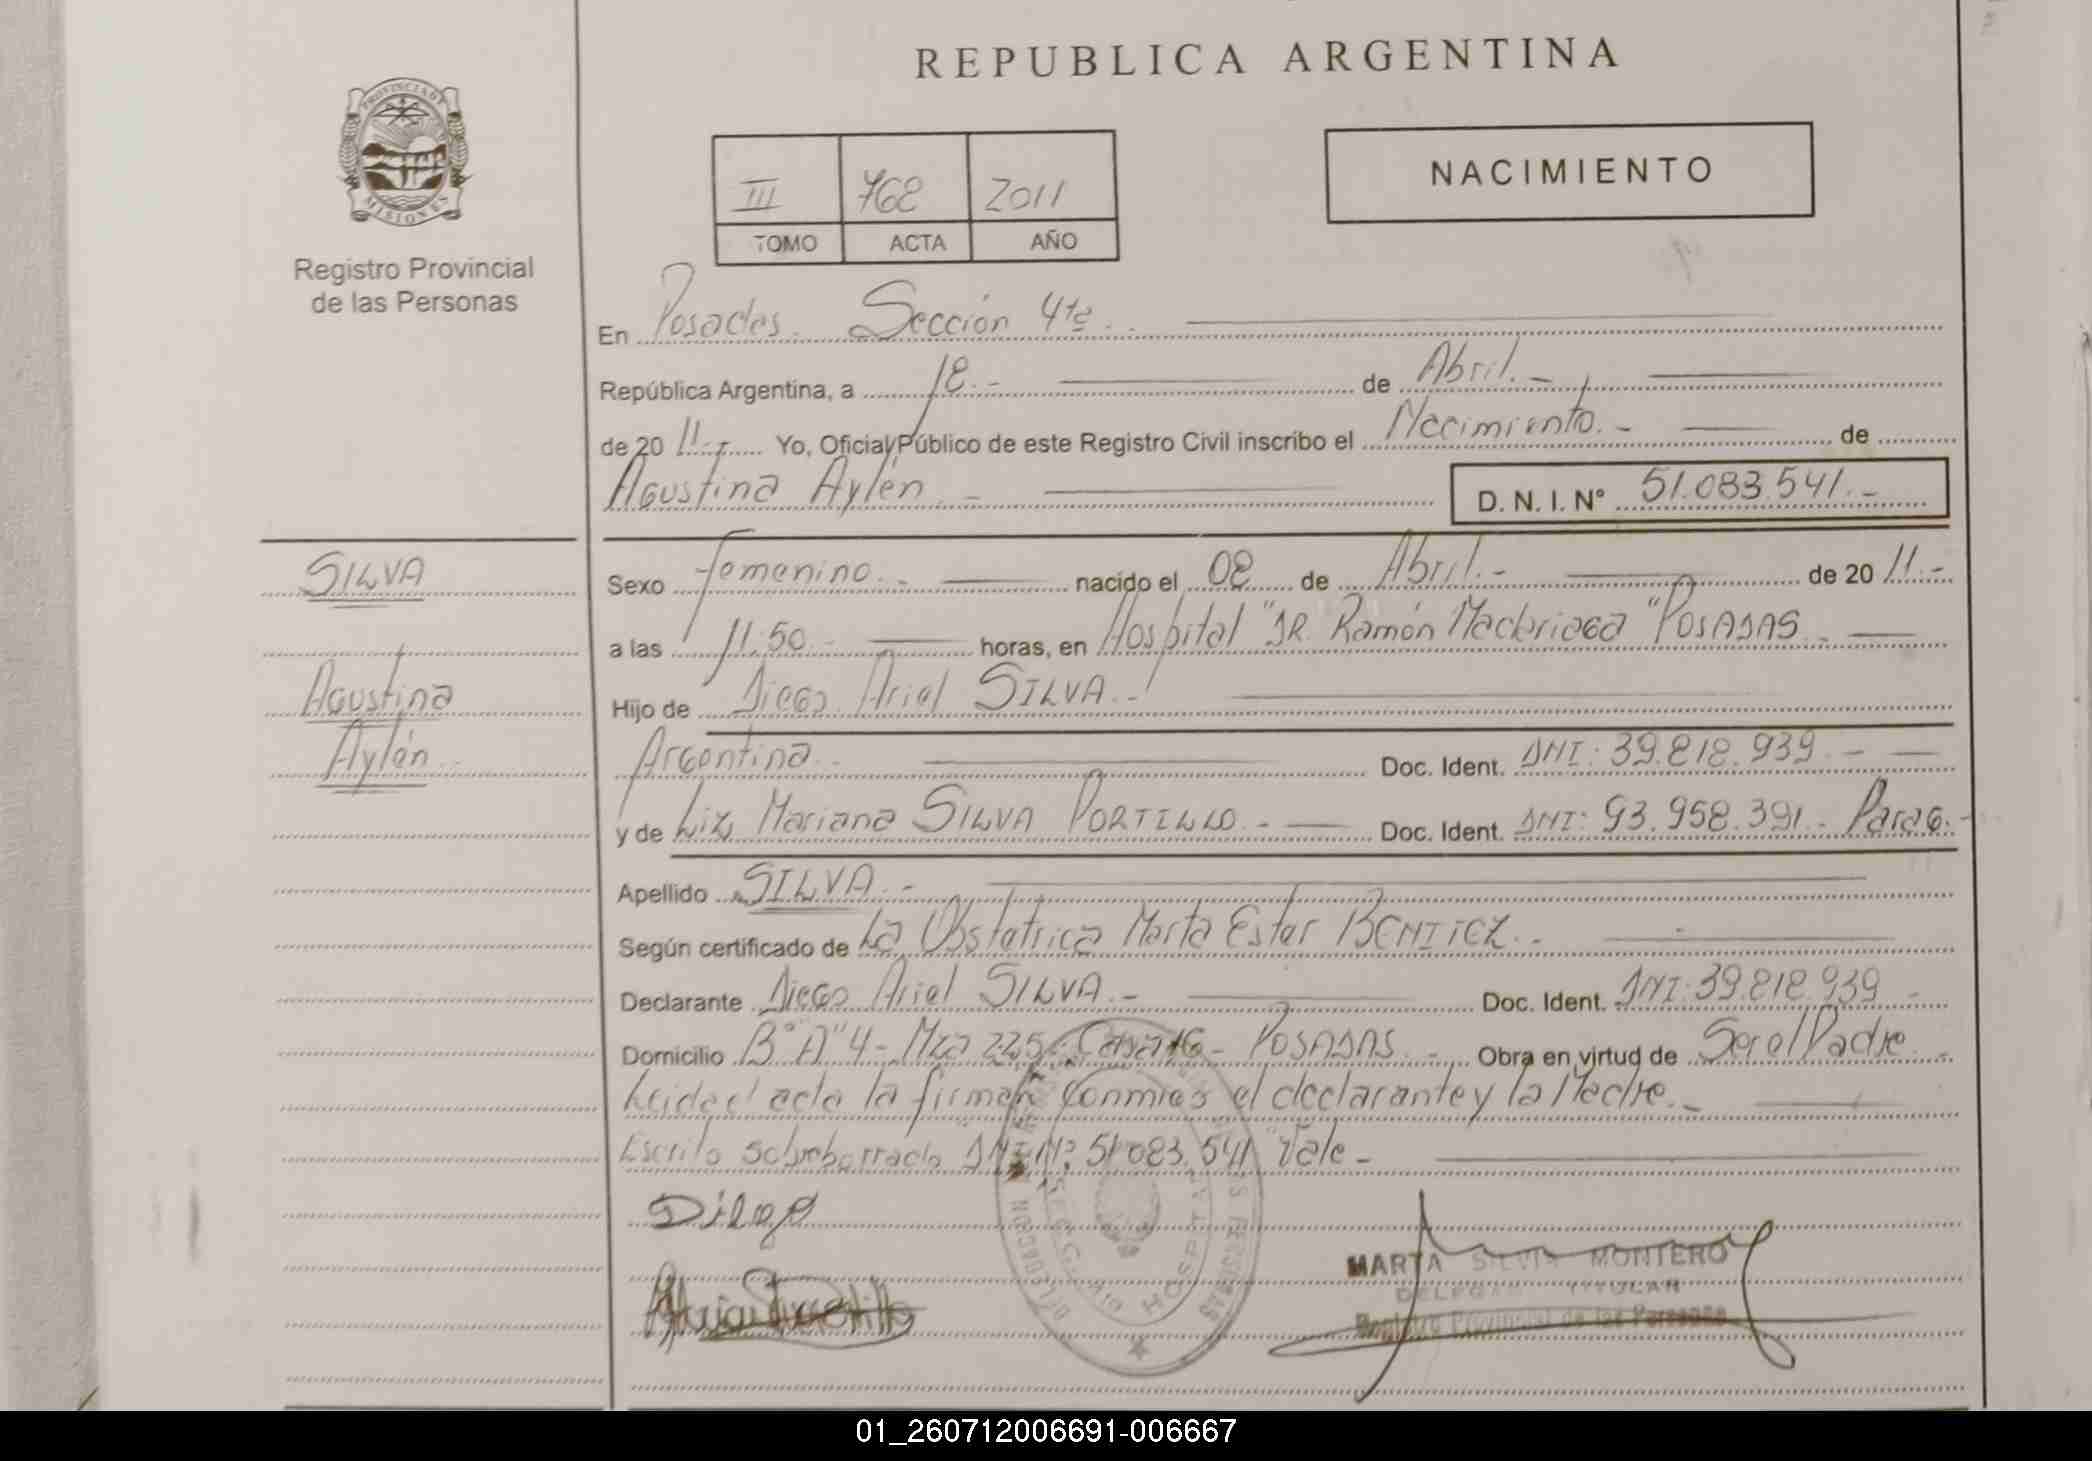 REPUBLICA ARGENTINA
PROVINCIA DE
MISIONES
Registro Provincial
de las Personas
III 768 2011
TOMO ACTA AÑO
NACIMIENTO
En Posadas. Sección 4ta.
República Argentina, a 18.- de Abril.-
de 20 11.- Yo, Oficial Público de este Registro Civil inscribo el Nacimiento.- de
Agustina Aylén.- D. N. I. Nº 51.083.541.-
SILVA
Agustina
Aylén
Sexo femenino.- nacido el 08 de Abril.- de 20 11.-
a las 11:50.- horas, en Hospital "DR. Ramón Madariaga" POSADAS.-
Hijo de Diego Ariel SILVA.-
Argentina.- Doc. Ident. DNI: 39.818.939.-
y de Liz Mariana SILVA PORTILLO.- Doc. Ident. DNI: 93.958.391.- Parag.-
Apellido SILVA.-
Según certificado de La Obstetrica Marta Ester BENITEZ.-
Declarante Diego Ariel SILVA.- Doc. Ident. DNI: 39.818.939-
Domicilio B° "A" 4- Mza 225- Casa 16- POSADAS.- Obra en virtud de Ser el Padre.-
Leida el acta la firman conmigo el declarante y la Madre.-
Escrito sobreborrado DNI Nº 51.083.541 "Vale-
Diego
MARTA SILVIA MONTERO
DELEGADA TITULAR
Registro Provincial de las Personas
01_260712006691-006667